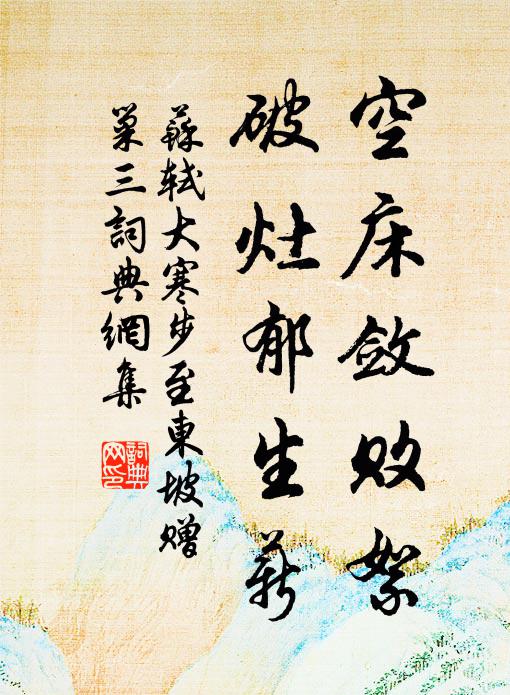 空床敛败絮
破灶郁生薪
蘇轼大寒步至東坡赠
巢三詞典網集
詞典
网印